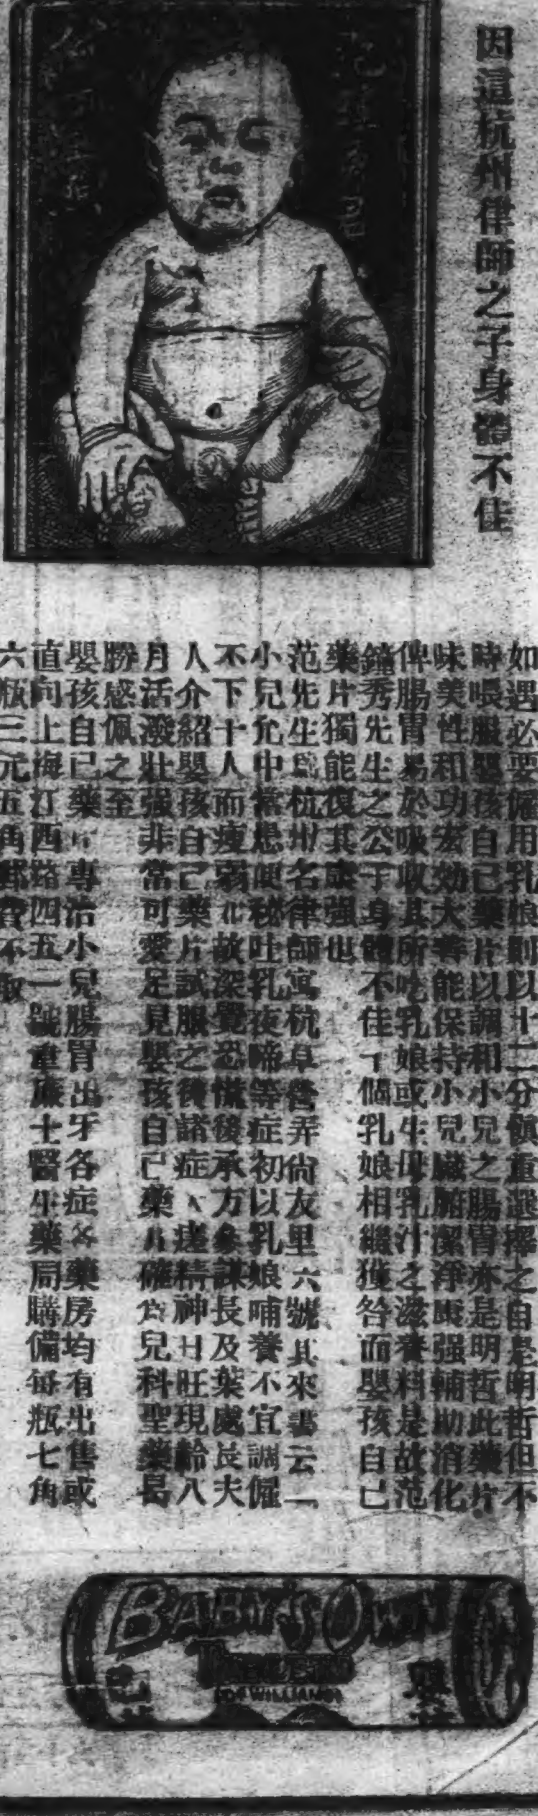 因這杭州律師之子身體不佳
如遇必要僱用乳娘則以十二分愼重選擇之自是明哲但不
時喂服嬰孩自己藥片以調和小兒之腸胃亦是明哲此藥片
味美性和功宏効大善能保持小兒臟腑潔淨康强輔助消化
俾腸胃易於吸收其所吃乳娘或生母乳汁之滋養料是故范
鏞秀先生之公子身體不佳十個乳娘相繼獲咎而嬰孩自己
藥片獨能復其康强也
范先生爲杭州名律師寓杭阜營弄尙友里六號其來書云一
小兒允中當患便秘吐乳夜啼等症初以乳娘哺養不宜調僱
不下十人而瘦弱故深覺恐慌後承方參謀長及葉處長夫
人介紹嬰孩自己藥片試服之後諸症瘥精神日旺現齡八
月活潑壯强非常可愛足見嬰孩自己藥片確爲兒科聖藥曷
勝感佩之至
嬰孩自己藥片專治小兒腸胃出牙各症各藥房均有出售或
直向上海江西路四五一號韋廉士醫生藥局購備每瓶七角
六瓶三元五角郵費不取
BABY'S OWN
TABLETS
DR WILLIAMS